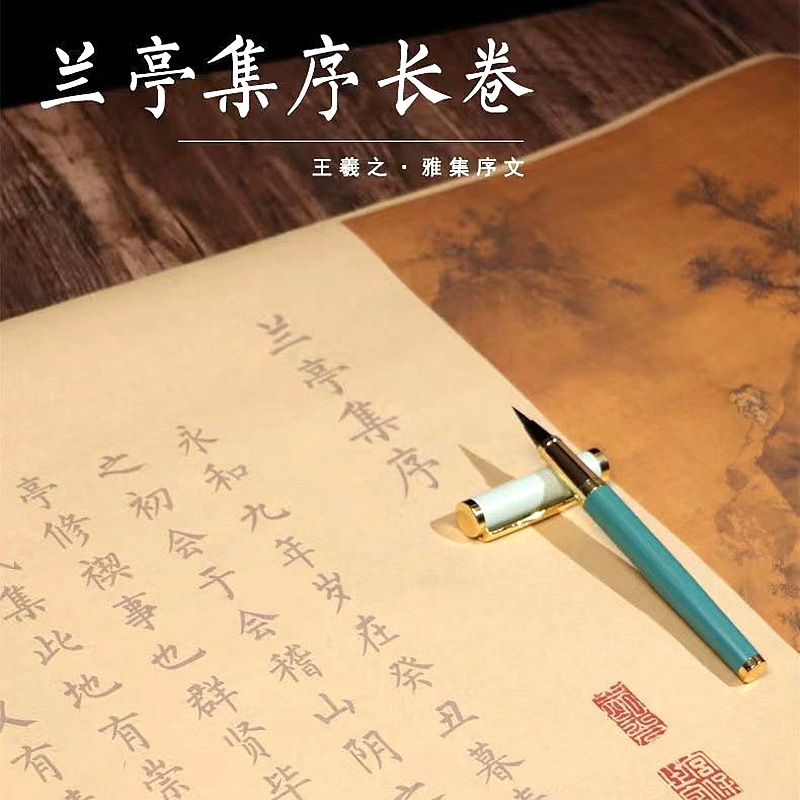 兰亭集序长卷
王羲之·雅集序文
兰亭集序
永和九年岁在癸丑暮
之初会于会稽山阴
亭修禊事也群贤毕
集此地有崇
有